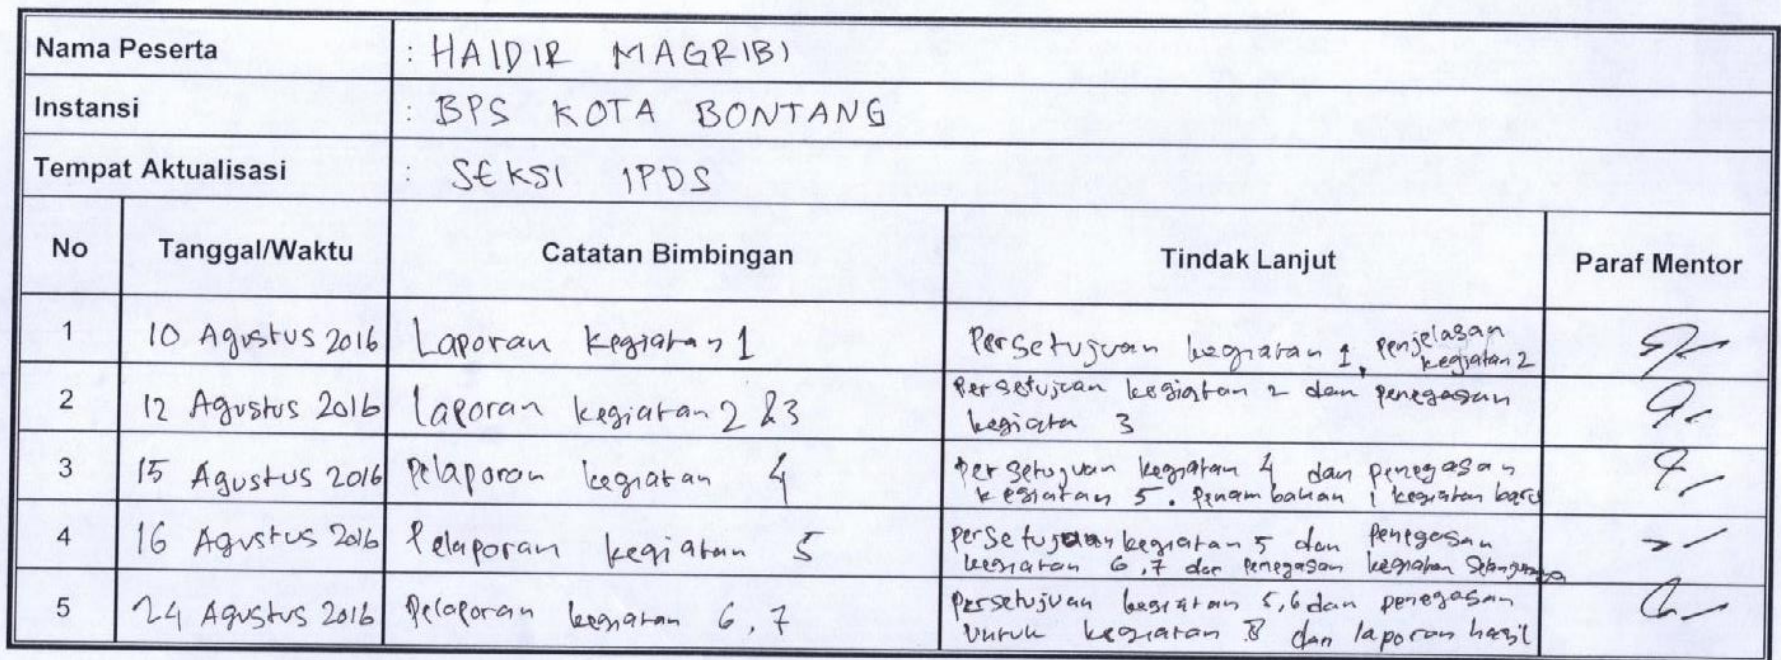 Nama Peserta : HAIDIR MAGRIBI
Instansi : BPS KOTA BONTANG
Tempat Aktualisasi : SEKSI IPDS
No Tanggal/Waktu Catatan Bimbingan Tindak Lanjut Paraf Mentor
1 10 Agustus 2016 Laporan kegiatan 1 Persetujuan kegiatan 1, penjelasan
kegiatan 2
2 12 Agustus 2016 Laporan kegiatan 2 & 3 Persetujuan kegiatan 2 dan penegasan
kegiata 3
3 15 Agustus 2016 Pelaporan kegiatan 4 persetujuan kegiatan 4 dan penegasan
kegiatan 5. Penambahan 1 kegiatan baru
4 16 Agustus 2016 Pelaporan kegiatan 5 persetujuan kegiatan 5 dan penegasan
kegiatan 6,7 dan penegasan kegiatan selanjutnya
5 24 Agustus 2016 Pelaporan kegiatan 6, 7 persetujuan kegiatan 5,6 dan penegasan
untuk kegiatan 8 dan laporan hasil